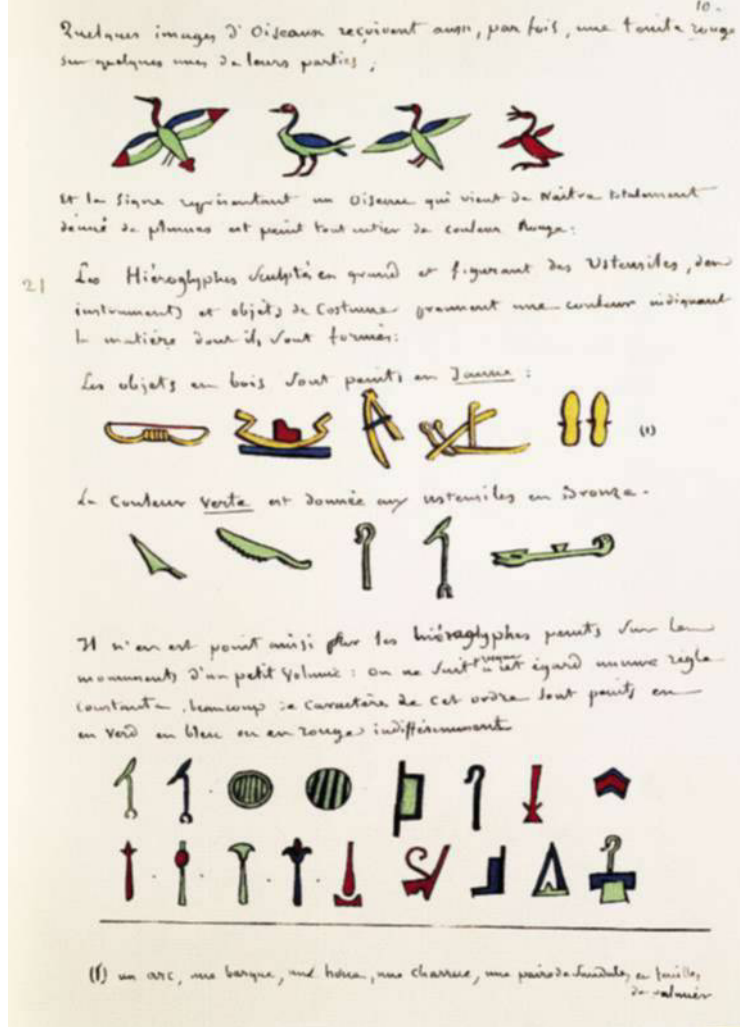 10.
Quelques images d'Oiseaux reçoivent aussi, par fois, une teinte rouge
sur quelques unes de leurs parties;
Et le signe représentant un Oiseau qui vient de Naître totalement
dénué de plumes est peint tout entier de couleur Rouge:
21 Les Hiéroglyphes sculptés en grand et figurant des Ustensiles, des
instruments et objets de Costume prennent une couleur indiquant
la matière dont ils sont formés:
Les objets en bois sont peints en Jaune:
(1)
La Couleur verte est donnée aux ustensiles en Bronze.
Il n'en est point ainsi pour les hiéroglyphes peints sur les
monuments d'un petit Volume: on ne suit à cet égard aucune règle
constante, beaucoup de caractères de cet ordre sont peints en
en verd en bleu ou en rouge indifféremment
(1) un arc, une barque, une houe, une charrue, une paire de sandales en feuilles
de palmier